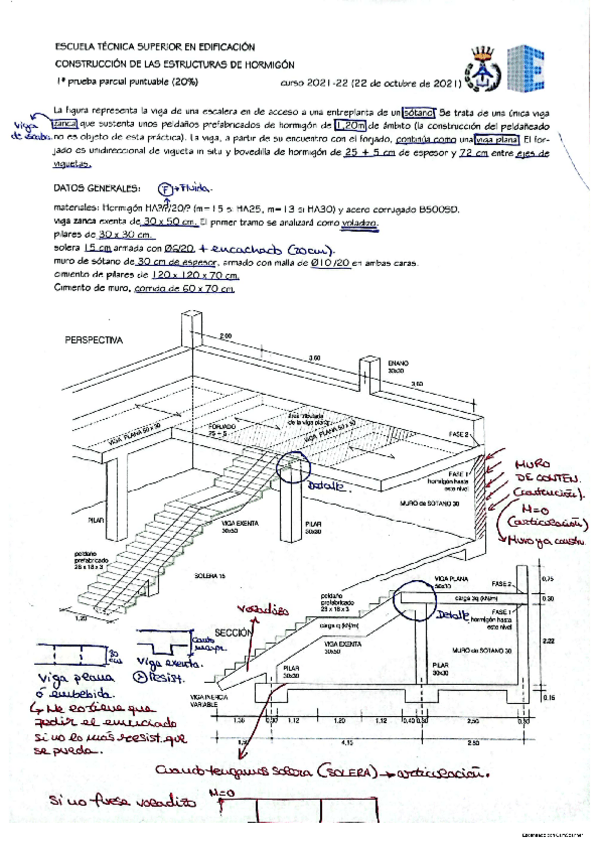 ESCUELA TÉCNICA SUPERIOR EN EDIFICACIÓN
CONSTRUCCIÓN DE LAS ESTRUCTURAS DE HORMIGÓN
1ª prueba parcial puntuable (20%) curso 2021-22 (22 de octubre de 2021)
La figura representa la viga de una escalera en de acceso a una entreplanta de un sótano. Se trata de una única viga
zanca que sustenta unos peldaños prefabricados de hormigón de 1,20m de ámbito (la construcción del peldañeado
no es objeto de esta práctica). La viga, a partir de su encuentro con el forjado, continúa como una viga plana. El for-
jado es unidireccional de vigueta in situ y bovedilla de hormigón de 25 + 5 cm de espesor y 72 cm entre ejes de
viguetas.
Viga
DATOS GENERALES:
F → Fluida.
viga zanca exenta de 30 x 50 cm. El primer tramo se analizará como voladizo.
pilares de 30 x 30 cm.
solera 15 cm armada con Ø6/20. + encachado (20cm).
muro de sótano de 30 cm de espesor, armado con malla de Ø10/20 en ambas caras.
cimiento de pilares de 120 x 120 x 70 cm.
Cimiento de muro, corrido de 60 x 70 cm.
PERSPECTIVA
2.60
3.60
3.60
ENANO
30x30
área tributaria
de la viga plana
FORJADO
25 + 5
VIGA PLANA 50 x 30
VIGA PLANA 50 x 30
FASE 2
FASE 1
hormigón hasta
este nivel
MURO de SOTANO 30
Detalle.
MURO
DE CONTEN.
(contención).
M=0
(articulación)
PILAR
VIGA EXENTA
30x50
PILAR
30x30
peldaño
prefabricado
SOLERA 15
1.20
voladizo
SECCIÓN
peldaño
prefabricado
carga q (kN/m)
VIGA PLANA
50x30
FASE 2
FASE 1
hormigón hasta
este nivel
Detalle.
0.75
0.30
2.22
0.15
VIGA EXENTA
30x50
MURO de SOTANO 30
PILAR
30x30
PILAR
30x30
VIGA INERCIA
VARIABLE
30
cm
Canto
mayor.
Viga plana
ó embebida.
Viga exenta.
Resist.
↳ No es tiene que
pedir el enunciado
si no lo más resist. que
se pueda.
1.12 1.20 1.12 2.50
4.15 2.80
Cuando tengamos solera (SOLERA) → articulación.
si no fuese voladizo M=0